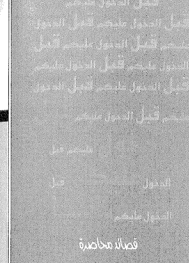 قبل الدخول عليكم
الدخول عليكم قبل الدخول
عليكم قبل الدخول عليكم
الدخول عليكم قبل الدخول عليكم
قبل الدخول عليكم قبل الدخول
عليكم قبل الدخول عليكم
عليكم قبل
الدخول قبل
الدخول عليكم
قصائد محاصرة